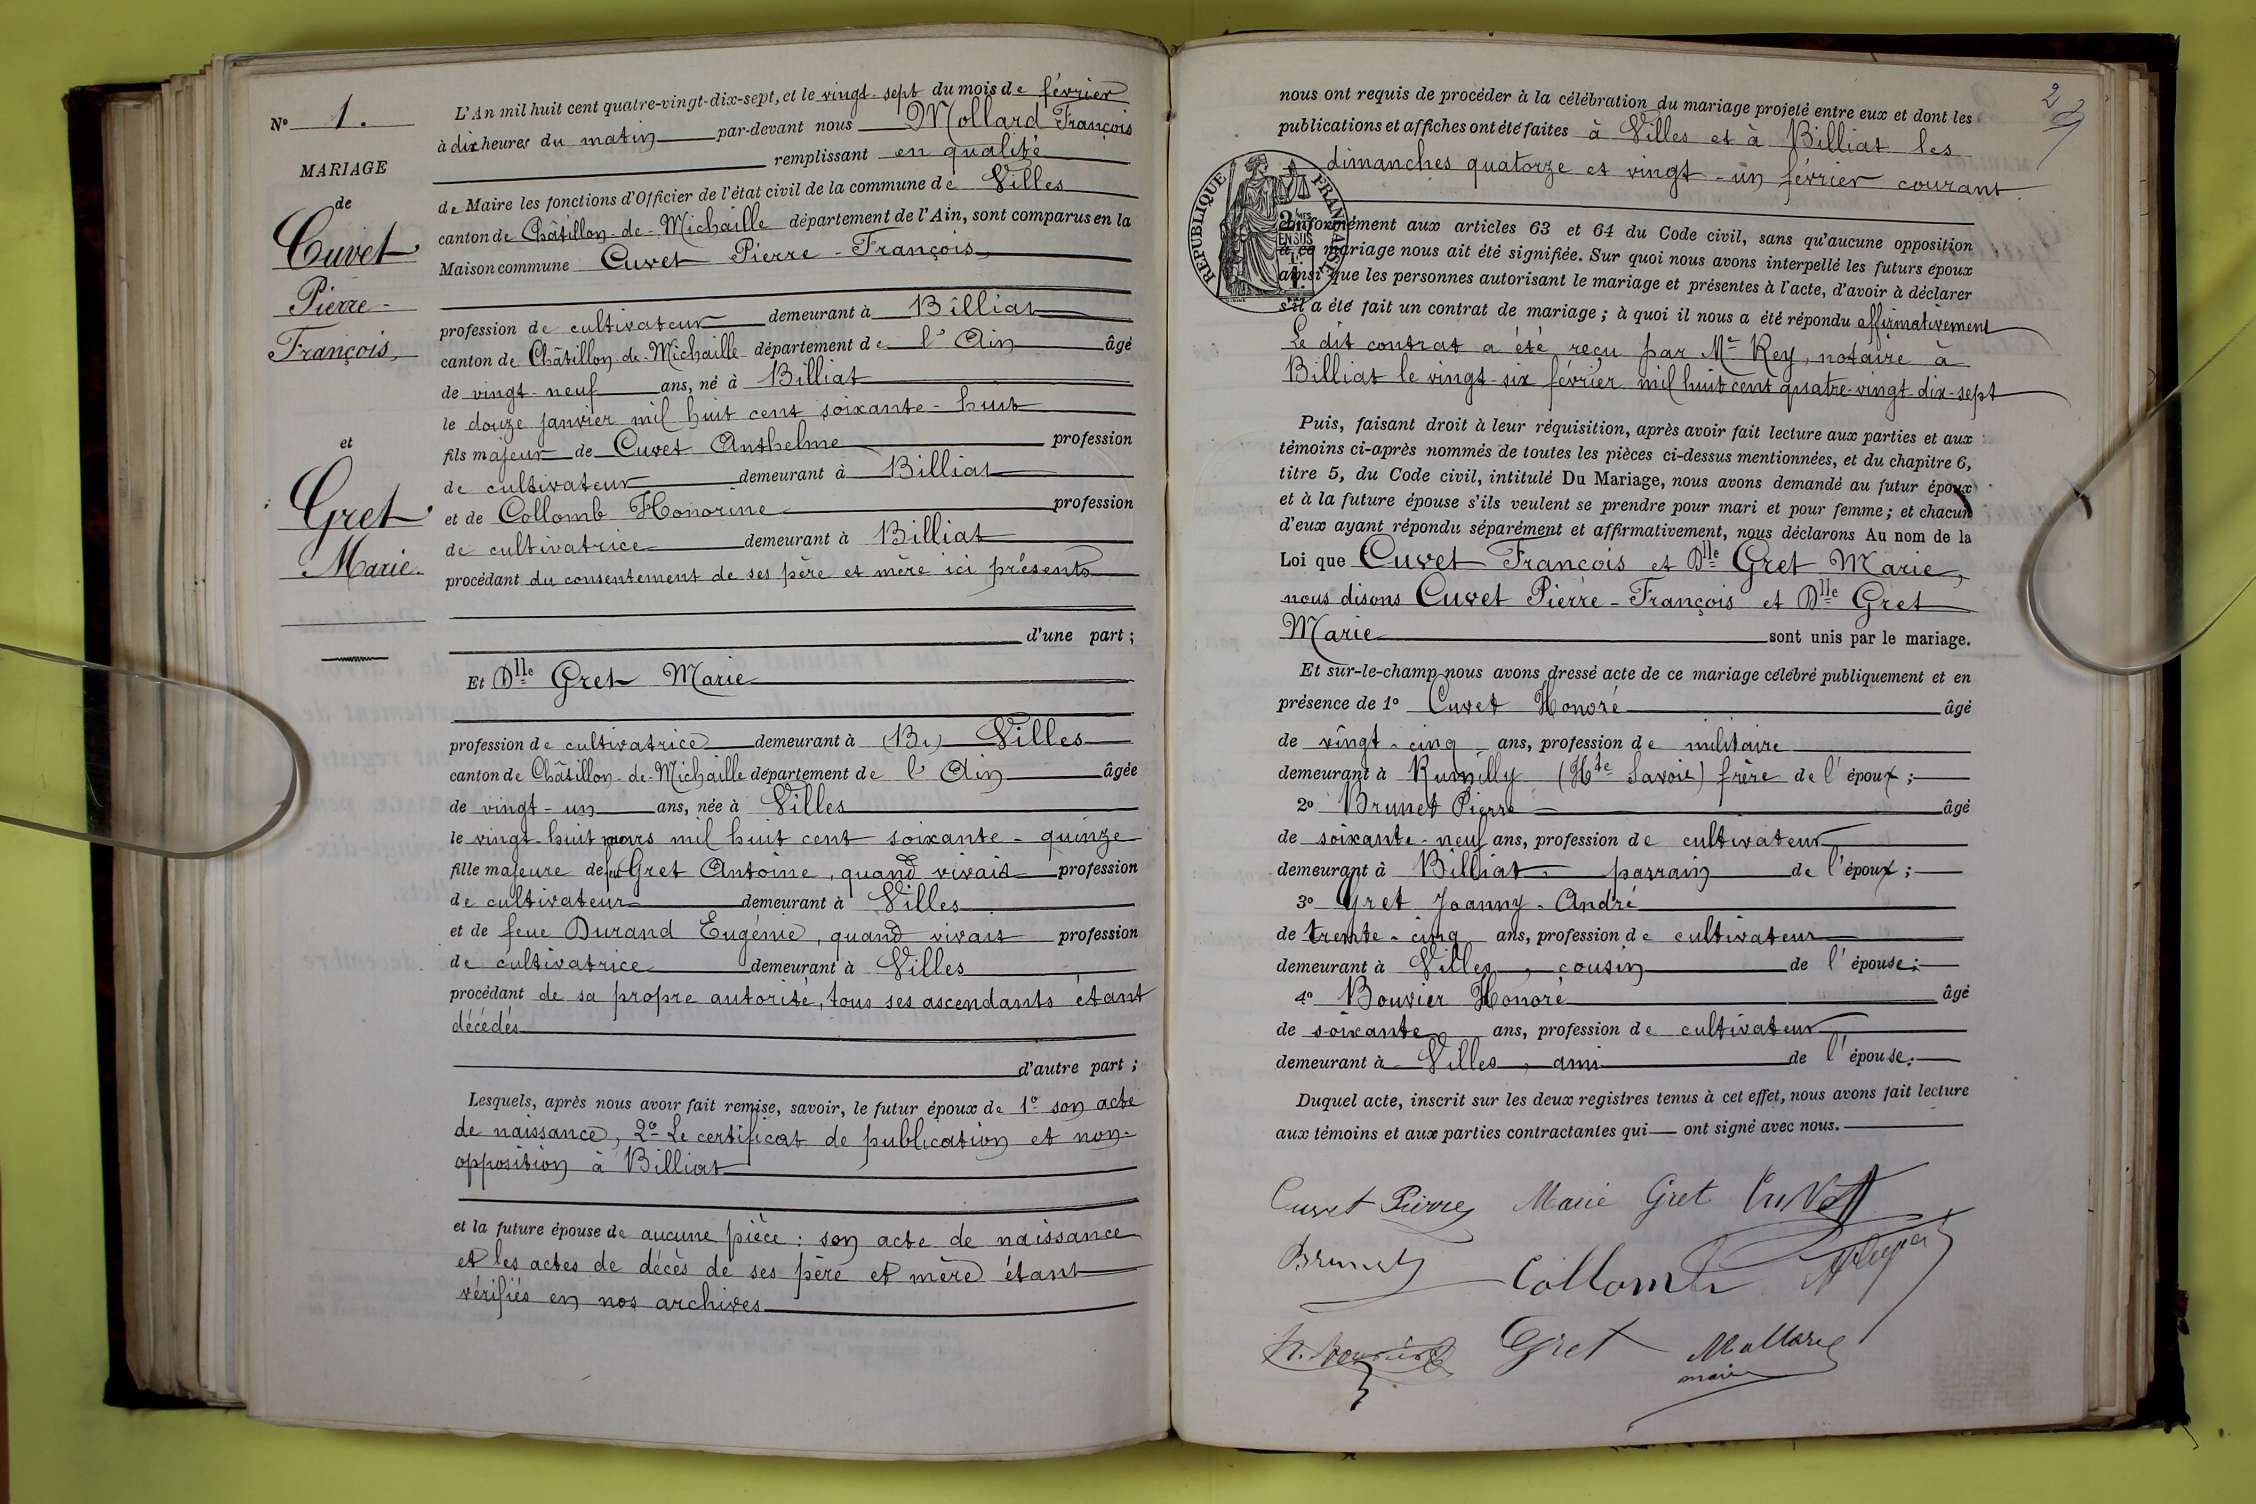 N° 1.
MARIAGE
de
Cuvet
Pierre-
François
et
Gret
Marie.
L'An mil huit cent quatre-vingt-dix-sept, et le vingt-sept du mois de février
à dix heures du matin par-devant nous Mollard François
remplissant en qualité
de Maire les fonctions d'Officier de l'état civil de la commune de Villes
canton de Châtillon-de-Michaille département de l'Ain, sont comparus en la
Maison commune Cuvet Pierre-François
profession de cultivateur demeurant à Billiat
canton de Châtillon-de-Michaille département de l'Ain âgé
de vingt-neuf ans, né à Billiat
le douze janvier mil huit cent soixante-huit
fils majeur de Cuvet Anthelme profession
de cultivateur demeurant à Billiat
et de Collomb Honorine profession
de cultivatrice demeurant à Billiat
procédant du consentement de ses père et mère ici présents
d'une part;
Et Dlle Gret Marie
profession de cultivatrice demeurant à (B.) Villes
canton de Châtillon-de-Michaille département de l'Ain âgée
de vingt-un ans, née à Villes
le vingt-huit mars mil huit cent soixante-quinze
fille majeure de feu Gret Antoine, quand vivait profession
de cultivateur demeurant à Villes
et de feue Durand Eugénie, quand vivait profession
de cultivatrice demeurant à Villes
procédant de sa propre autorité, tous ses ascendants étant
décédés
d'autre part;
Lesquels, après nous avoir fait remise, savoir, le futur époux de 1° son acte
de naissance, 2° Le certificat de publication et non-
opposition à Billiat
et la future épouse de aucune pièce: son acte de naissance
et les actes de décès de ses père et mère étant
vérifiés en nos archives
2
nous ont requis de procéder à la célébration du mariage projeté entre eux et dont les
publications et affiches ont été faites à Villes et à Billiat les
dimanches quatorze et vingt-un février courant
REPUBLIQUE FRANÇAISE
conformément aux articles 63 et 64 du Code civil, sans qu'aucune opposition
à ce mariage nous ait été signifiée. Sur quoi nous avons interpellé les futurs époux
ainsi que les personnes autorisant le mariage et présentes à l'acte, d'avoir à déclarer
s'il a été fait un contrat de mariage; à quoi il nous a été répondu affirmativement
Le dit contrat a été reçu par Me Rey, notaire à
Billiat le vingt-six février mil huit cent quatre-vingt-dix-sept
Puis, faisant droit à leur réquisition, après avoir fait lecture aux parties et aux
témoins ci-après nommés de toutes les pièces ci-dessus mentionnées, et du chapitre 6,
titre 5, du Code civil, intitulé Du Mariage, nous avons demandé au futur époux
et à la future épouse s'ils veulent se prendre pour mari et pour femme; et chacun
d'eux ayant répondu séparément et affirmativement, nous déclarons Au nom de la
Loi que Cuvet François et Dlle Gret Marie,
nous disons Cuvet Pierre-François et Dlle Gret
Marie sont unis par le mariage.
Et sur-le-champ nous avons dressé acte de ce mariage célébré publiquement et en
présence de 1° Cuvet Honoré âgé
de vingt-cinq ans, profession de militaire
demeurant à Rumilly (Hte Savoie) frère de l'époux;
2° Brunet Pierre âgé
de soixante-neuf ans, profession de cultivateur
demeurant à Billiat parrain de l'époux;
3° Gret Joanny-André
de trente-cinq ans, profession de cultivateur
demeurant à Villes, cousin de l'épouse;
4° Bouvier Honoré âgé
de soixante ans, profession de cultivateur
demeurant à Villes, ami de l'épouse.
Duquel acte, inscrit sur les deux registres tenus à cet effet, nous avons fait lecture
aux témoins et aux parties contractantes qui ont signé avec nous.
Cuvet Pierre Marie Gret Cuvet
Brunet Collomb
H. Bouvier Gret Mollard
maire